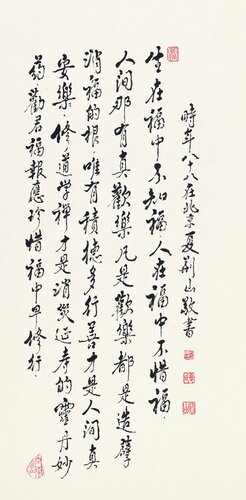 時年八八在北京夏荆山敬書
生在福中不知福人在福中不惜福.
人间那有真歡樂凡是歡樂都是造孽
消福的根.唯有積德多行善才是人间真
安樂.修道学禅才是消災延寿的靈丹妙
葯勸君福報應珍惜福中早修行.